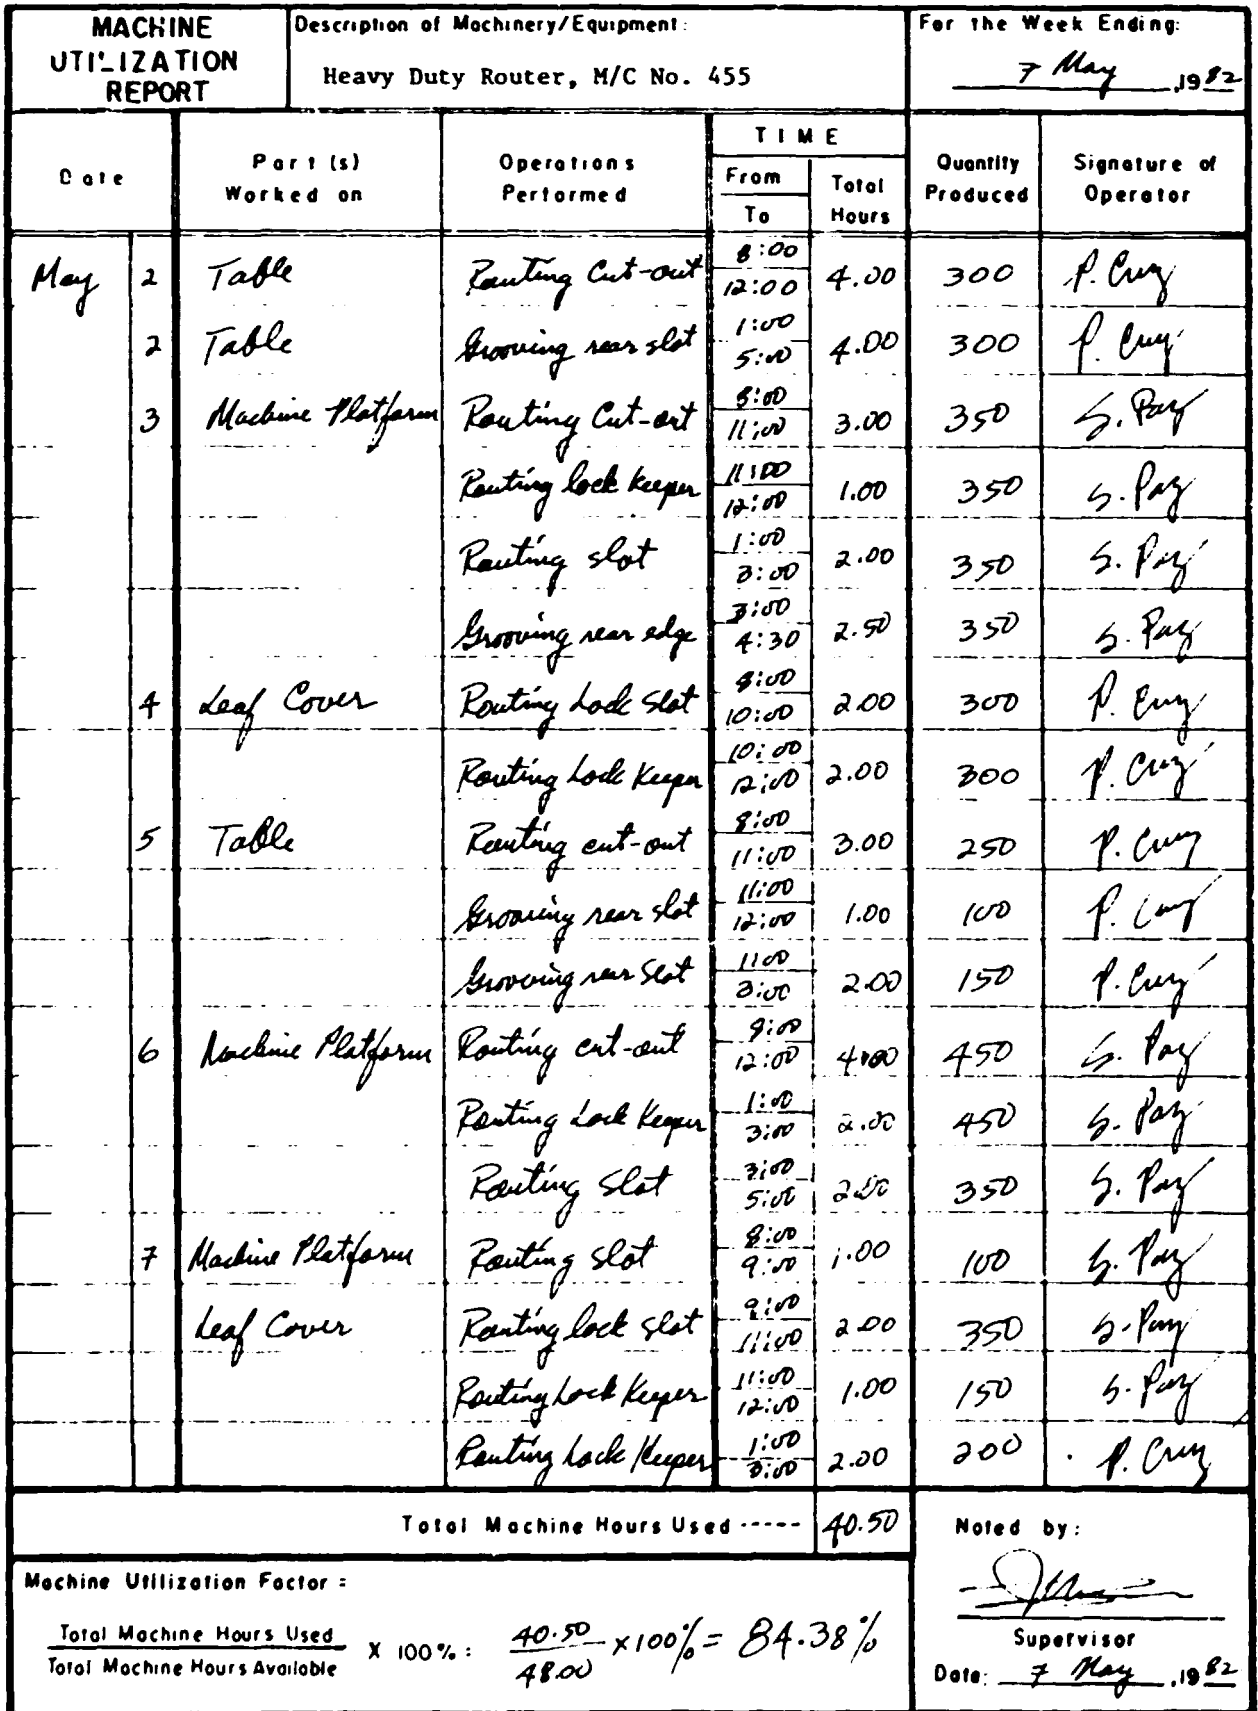 MACHINE UTILIZATION REPORT
Description of Machinery/Equipment:
Heavy Duty Router, M/C No. 455
For the Week Ending:
7 May ,1982
Date
Part(s) Worked on
Operations Performed
TIME
From
To
Total Hours
Quantity Produced
Signature of Operator
May 2 Table Routing Cut-out 8:00 12:00 4.00 300 P. Cruz
2 Table Grooving rear slot 1:00 5:00 4.00 300 P. Cruz
3 Machine Platform Routing Cut-out 8:00 11:00 3.00 350 S. Paz
Routing lock keeper 11:00 12:00 1.00 350 S. Paz
Routing slot 1:00 3:00 2.00 350 S. Paz
Grooving rear edge 3:00 4:30 2.50 350 S. Paz
4 Leaf Cover Routing Lock Slot 8:00 10:00 2.00 300 P. Cruz
Routing Lock Keeper 10:00 12:00 2.00 300 P. Cruz
5 Table Routing cut-out 8:00 11:00 3.00 250 P. Cruz
Grooving rear slot 11:00 12:00 1.00 100 P. Cruz
Grooving rear Slot 1:00 3:00 2.00 150 P. Cruz
6 Machine Platform Routing cut-out 8:00 12:00 4.00 450 S. Paz
Routing Lock Keeper 1:00 3:00 2.00 450 S. Paz
Routing Slot 3:00 5:00 2.00 350 S. Paz
7 Machine Platform Routing slot 8:00 9:00 1.00 100 S. Paz
Leaf Cover Routing lock slot 9:00 11:00 2.00 350 S. Paz
Routing Lock Keeper 11:00 12:00 1.00 150 S. Paz
Routing Lock Keeper 1:00 3:00 2.00 200 P. Cruz
Total Machine Hours Used ----- 40.50
Noted by:
Machine Utilization Factor =
Total Machine Hours Used
Total Machine Hours Available
X 100% : 40.50 / 48.00 x100% = 84.38%
Supervisor
Date: 7 May ,1982